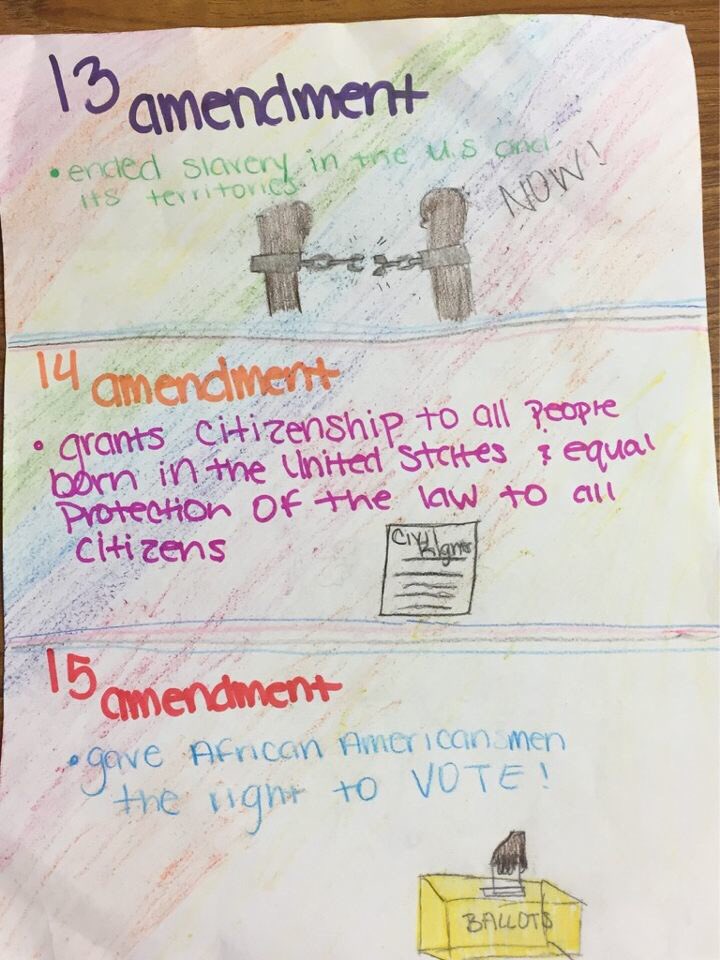 13 amendment
• ended slavery in the U.S and
its territories.
NOW!
14 amendment
• grants citizenship to all people
born in the United States & equal
Protection of the law to all
citizens
Civil
Rights
15 amendment
• gave African Americans men
the right to VOTE!
BALLOTS